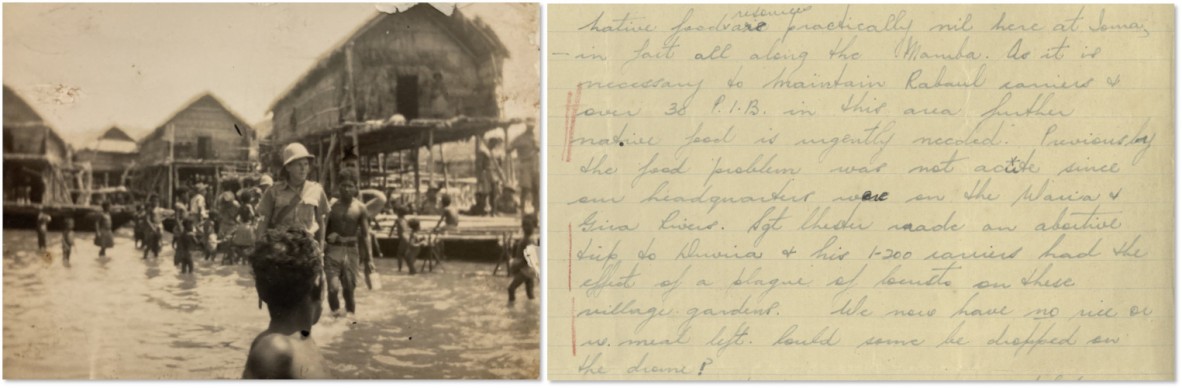 resources
native food are practically nil here at Ioma,
— in fact all along the Mamba. As it is
necessary to maintain Rabaul carriers &
over 30 P.I.B. in this area further
native food is urgently needed. Previously
the food problem was not acute since
our headquarters were on the Waria &
Gira Rivers. Sgt Chester made an abortive
trip to Duvira & his 1-200 carriers had the
effect of a plague of locusts on these
village gardens. We now have no rice or
w. meal left. Could some be dropped on
the drome?